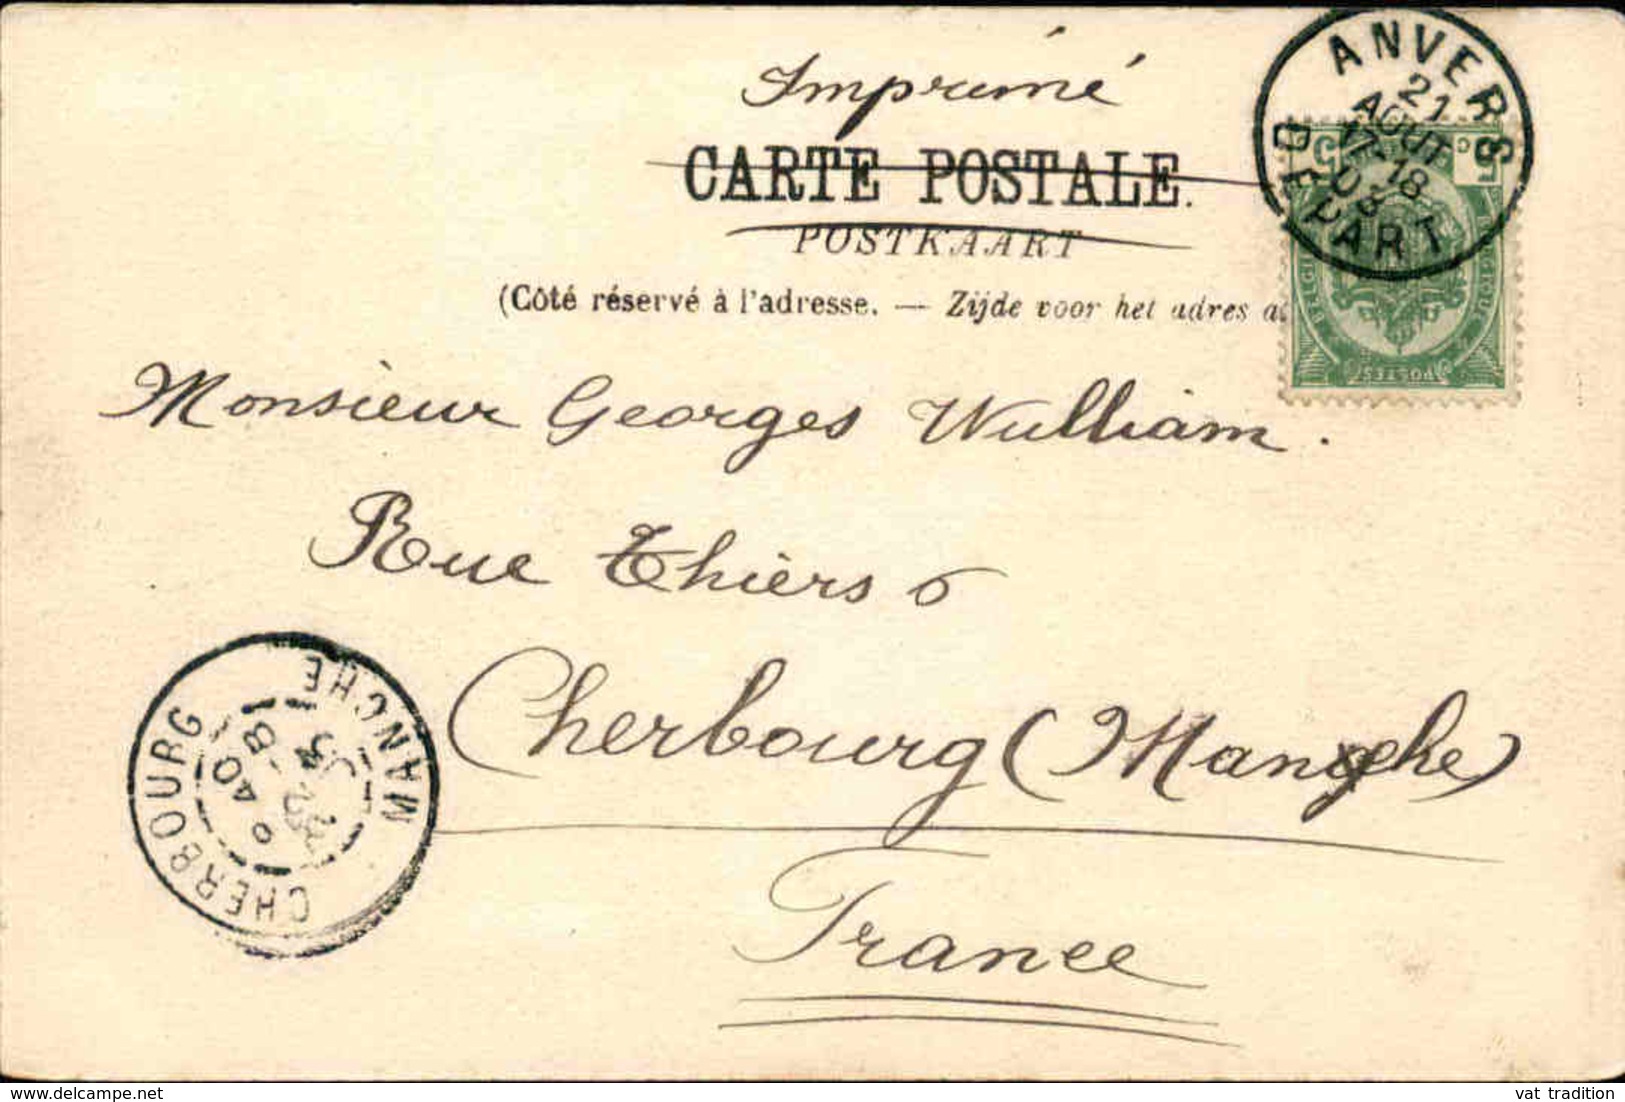 Imprimé
CARTE POSTALE.
POSTKAART
(Côté réservé à l'adresse. — Zijde voor het adres
ANVERS
21
AOUT
17-18
03
DEPART
5
Monsieur Georges Wulliam.
Rue Thiers 6
Cherbourg (Manche)
France
CHERBOURG
MANCHE
vat_tradition